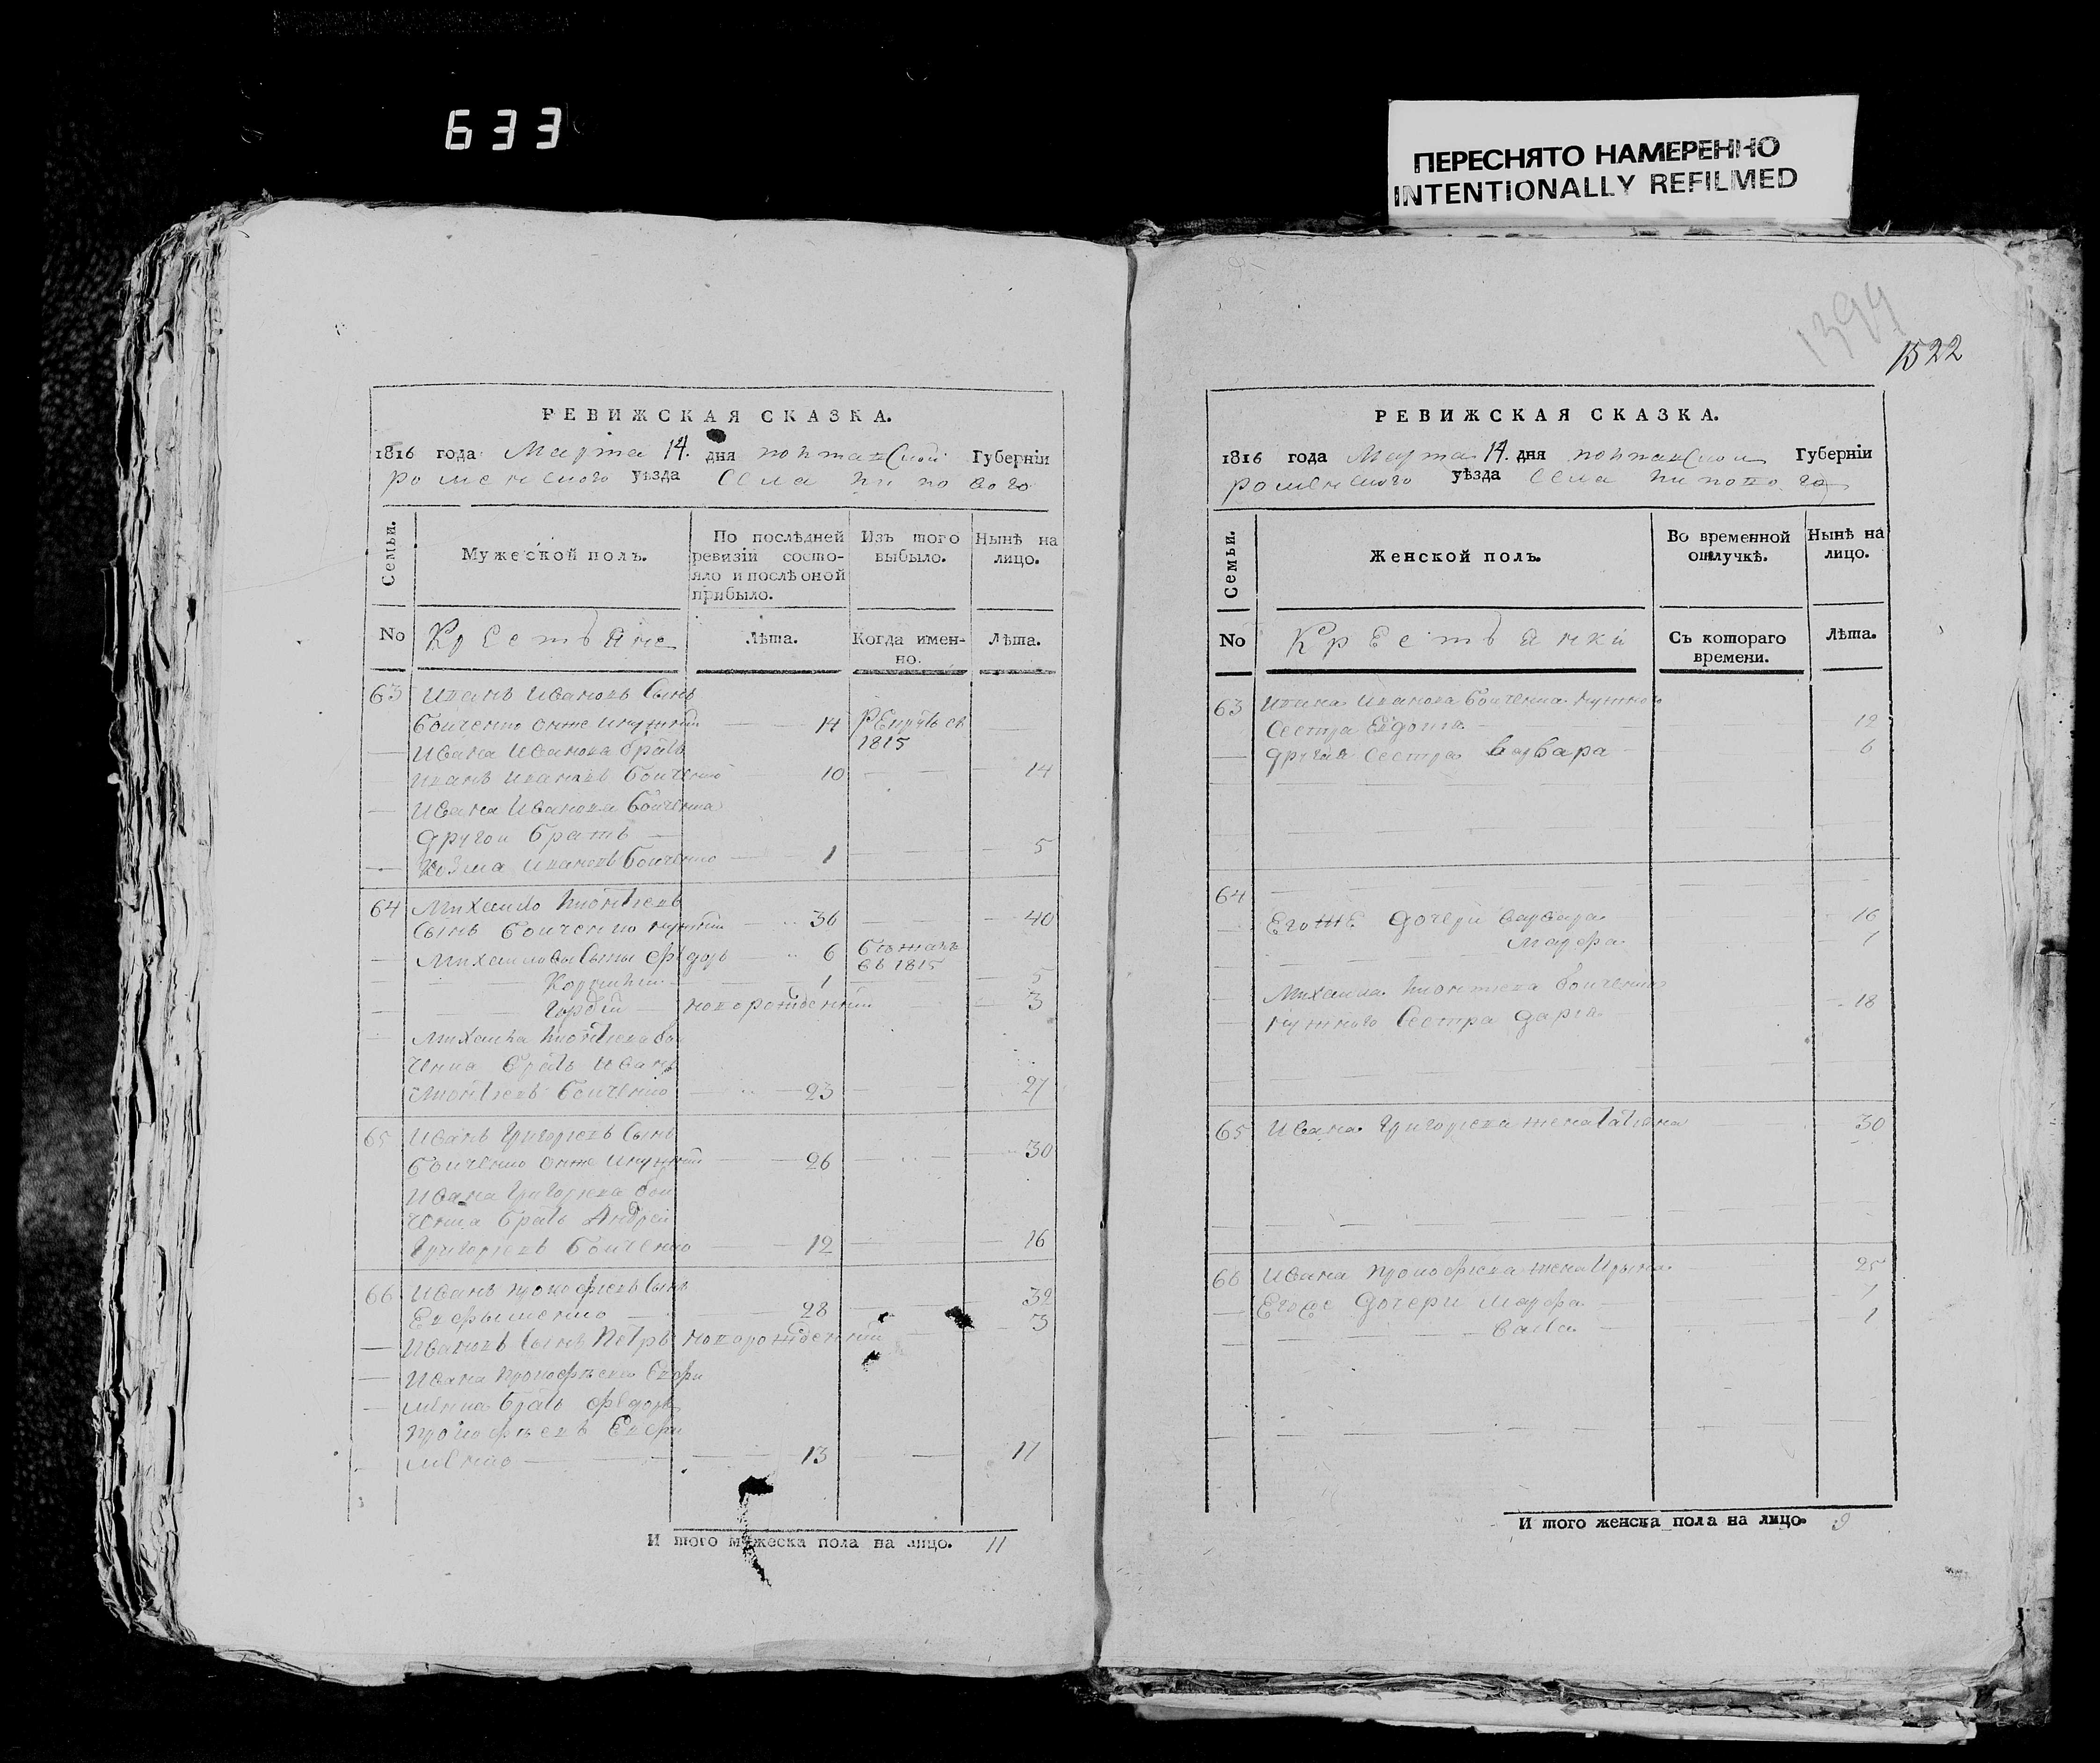 633
ПЕРЕСНЯТО НАМЕРЕННО
INTENTIONALLY REFILMED
1394
1522
РЕВИЖСКАЯ СКАЗКА.
1816 года Марта 14. дня Полтавской Губерніи
Роменского уѣзда Села
Семьи.
Мужеской полъ.
По послѣдней
ревизіи состо-
яло и послѣ оной
прибыло.
Изъ того
выбыло.
Нынѣ на
лицо.
No Крестьяне Лѣта. Когда имен-
но. Лѣта.
63 Иванъ Ивановъ Сынъ
Бойченко онже 14 Рекрутъ въ
1815
Ивана Иванова братъ
Иванъ Ивановъ Бойченко 10 14
Ивана Иванова Бойченка
другои братъ
Козма Ивановъ Бойченко 1 5
64 Михаило
Сынъ Бойченко 36 40
Михаиловы Сыны Федоръ 6 бѣжалъ
въ 1815
Корнилій 1 5
Гордѣй новорожденній 3
Михаила
братъ Иванъ
Бойченко 23 27
65 Иванъ Григорьевъ Сынъ
Бойченко онже 26 30
Ивана Григорьева Бой
ченка братъ Андрей
Григорьевъ Бойченко 12 16
66 Иванъ Прокофьевъ Сынъ
Евфименко 28 32
Ивановъ Сынъ Петръ новорожденній 3
Ивана Прокофьева Евфи
менка братъ Федоръ
Прокофьевъ Евфи
менко 13 17
И того мужеска пола на лицо. 11
РЕВИЖСКАЯ СКАЗКА.
1816 года Марта 14. дня Полтавской Губерніи
Роменского уѣзда Села
Семьи.
Женской полъ.
Во временной
отлучкѣ.
Нынѣ на
лицо.
No Крестьянки Съ котораго
времени. Лѣта.
63 Ивана Иванова Бойченка
Сестра 12
другая Сестра Варвара 6
64
Егоже дочери Варвара 16
Марфа 1
Михаила Бойченка
Сестра Дарья 18
65 Ивана Григорьева жена Татьяна 30
66 Ивана Прокофьева жена Ирина 25
Егоже дочери Марфа
1
И того женска пола на лицо. 9